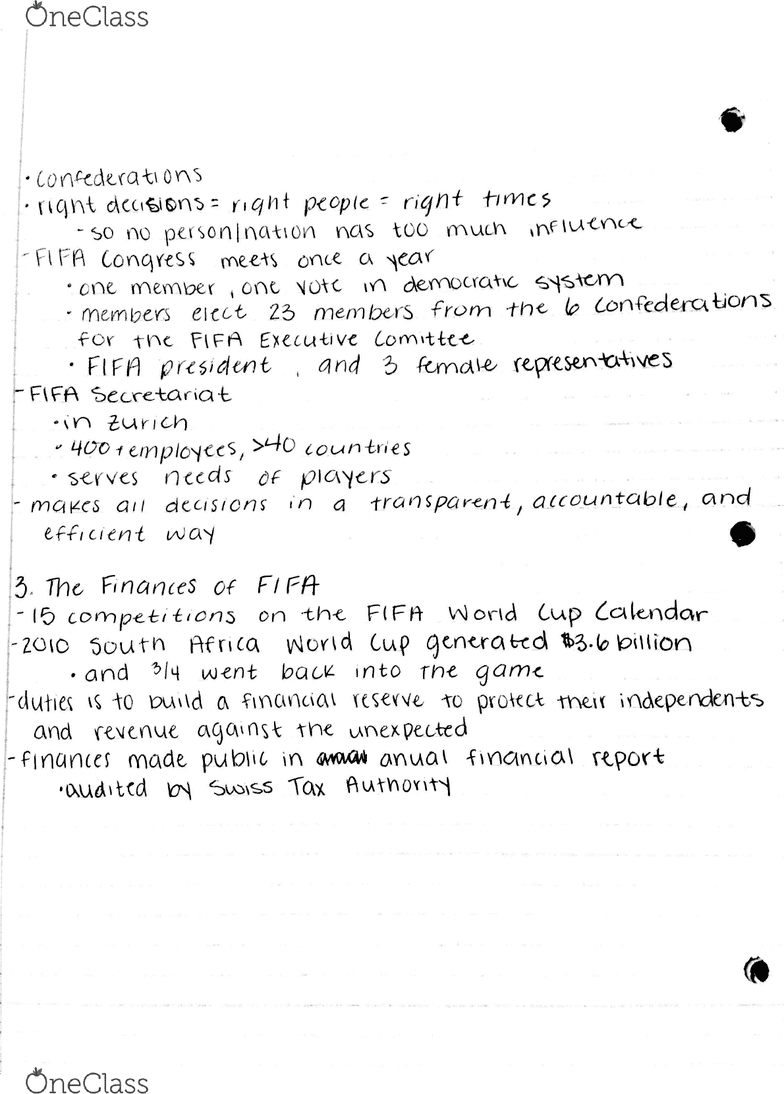 OneClass
• confederations
• right decisions = right people = right times
- so no person/nation has too much influence
- FIFA Congress meets once a year
• one member, one vote in democratic system
• members elect 23 members from the 6 confederations
for the FIFA Executive Comittee
• FIFA president, and 3 female representatives
- FIFA Secretariat
• in Zurich
• 400+ employees, >40 countries
• serves needs of players
- makes all decisions in a transparent, accountable, and
efficient way
3. The Finances of FIFA
- 15 competitions on the FIFA World Cup Calendar
- 2010 South Africa World Cup generated $3.6 billion
• and 3/4 went back into the game
- duties is to build a financial reserve to protect their independents
and revenue against the unexpected
- finances made public in anual financial report
• audited by Swiss Tax Authority
OneClass